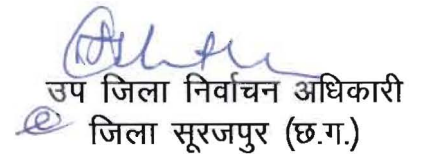 उप जिला निर्वाचन अधिकारी
जिला सूरजपुर (छ.ग.)